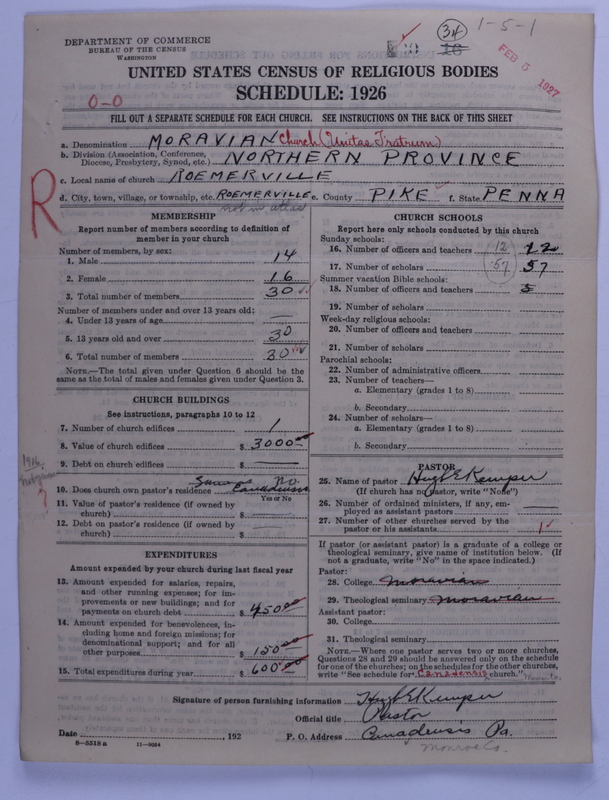 34 1-5-1
DEPARTMENT OF COMMERCE
BUREAU OF THE CENSUS
WASHINGTON
FEB 5 1927
UNITED STATES CENSUS OF RELIGIOUS BODIES
SCHEDULE: 1926
0-0
FILL OUT A SEPARATE SCHEDULE FOR EACH CHURCH. SEE INSTRUCTIONS ON THE BACK OF THIS SHEET
a. Denomination MORAVIAN Church (Unitas Fratrum)
b. Division (Association, Conference, Diocese, Presbytery, Synod, etc.) NORTHERN PROVINCE
c. Local name of church ROEMERVILLE
d. City, town, village, or township, etc. ROEMERVILLE e. County PIKE f. State PENNA
not in atlas
R
MEMBERSHIP
Report number of members according to definition of
member in your church
Number of members, by sex:
1. Male 14
2. Female 16
3. Total number of members 30
Number of members under and over 13 years old:
4. Under 13 years of age —
5. 13 years old and over 30
6. Total number of members 30
NOTE.—The total given under Question 6 should be
the same as the total of males and females given under Question 3.
CHURCH BUILDINGS
See instructions, paragraphs 10 to 12
7. Number of church edifices 1
8. Value of church edifices $ 3000.00
9. Debt on church edifices $ —
10. Does church own pastor's residence No.
Canadensis
Yes or No
11. Value of pastor's residence (if owned by
church) $ —
12. Debt on pastor's residence (if owned by
church) $ —
EXPENDITURES
Amount expended by your church during last fiscal year
13. Amount expended for salaries, repairs,
and other running expenses; for im-
provements or new buildings; and for
payments on church debt $ 450.00
14. Amount expended for benevolences, in-
cluding home and foreign missions; for
denominational support; and for all
other purposes $ 150.00
15. Total expenditures during year $ 600.00
CHURCH SCHOOLS
Report here only schools conducted by this church
Sunday schools:
16. Number of officers and teachers 12 12
17. Number of scholars 57 57
Summer vacation Bible schools:
18. Number of officers and teachers 5
19. Number of scholars
Week-day religious schools:
20. Number of officers and teachers
21. Number of scholars
Parochial schools:
22. Number of administrative officers
23. Number of teachers—
a. Elementary (grades 1 to 8)
b. Secondary
24. Number of scholars—
a. Elementary (grades 1 to 8)
b. Secondary
PASTOR
25. Name of pastor Hugh E Kemper
(If church has no pastor, write "None")
26. Number of ordained ministers, if any, em-
ployed as assistant pastors —
27. Number of other churches served by the
pastor or his assistants 1
If pastor (or assistant pastor) is a graduate of a college or
theological seminary, give name of institution below. (If
not a graduate, write "No" in the space indicated.)
Pastor:
28. College Moravian
29. Theological seminary Moravian
Assistant pastor:
30. College
31. Theological seminary
NOTE.—Where one pastor serves two or more churches,
Questions 28 and 29 should be answered only on the schedule
for one of the churches; on the schedules for the other churches,
write "See schedule for Canadensis church."
Signature of person furnishing information Hugh E Kemper
Official title Pastor
Date , 192 P. O. Address Canadensis Pa.
Monroe Co.
8—5518 a 11—9034